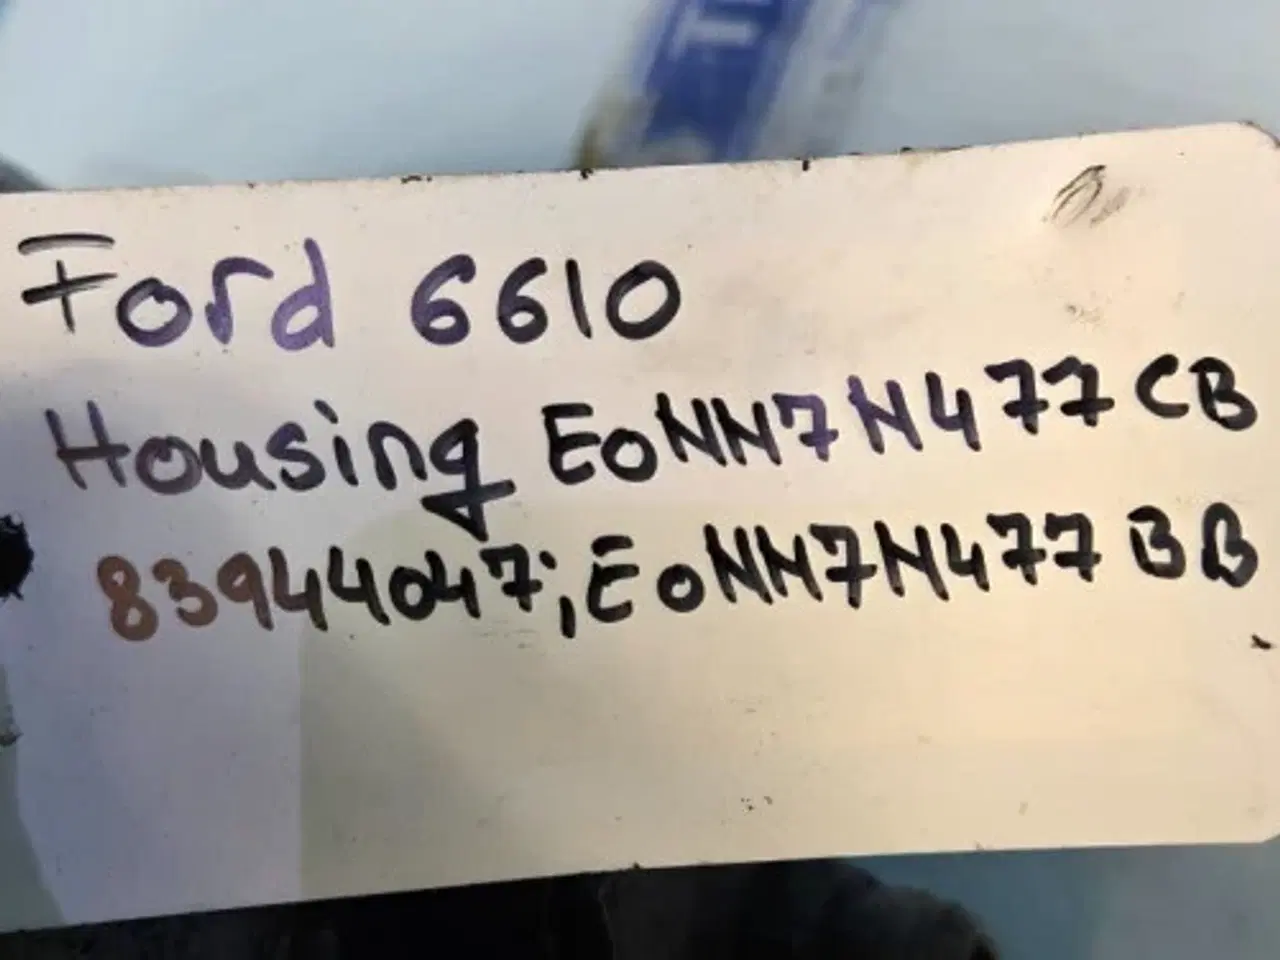 Ford 6610
Housing EoNN7N477CB
83944047;EoNN7N477BB